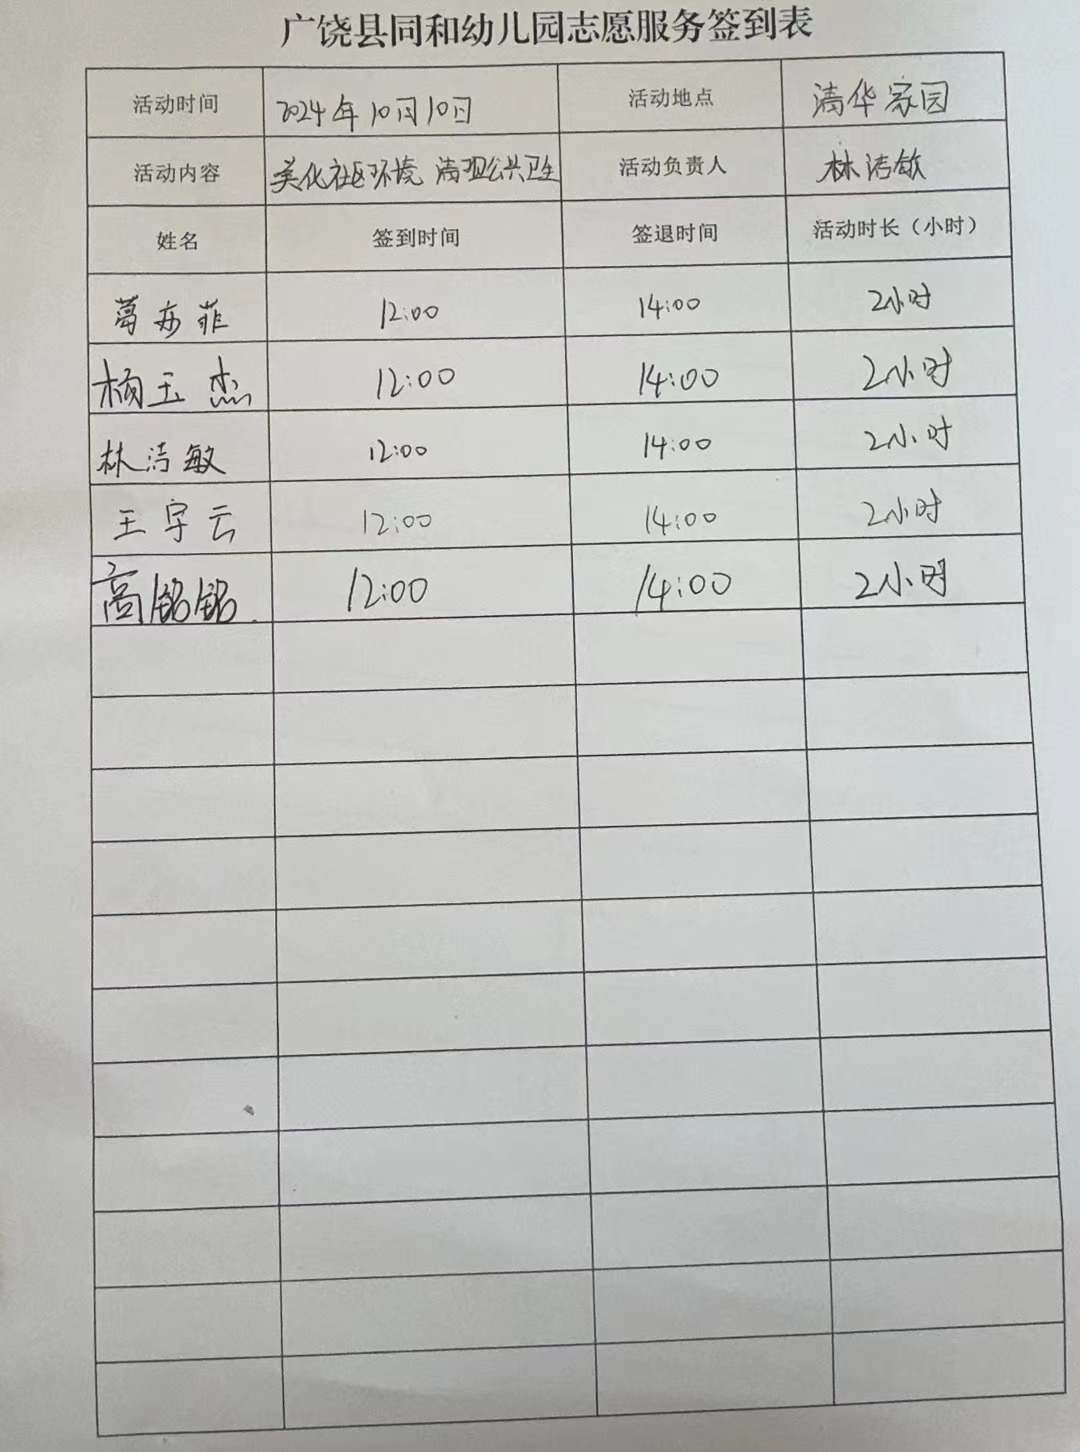 广饶县同和幼儿园志愿服务签到表
活动时间 2024年10月10日 活动地点 清华家园
活动内容 美化社区环境 清理公共卫生 活动负责人 林洁敏
姓名 签到时间 签退时间 活动时长（小时）
葛亦菲 12:00 14:00 2小时
杨玉杰 12:00 14:00 2小时
林洁敏 12:00 14:00 2小时
王宇云 12:00 14:00 2小时
高铭铭 12:00 14:00 2小时